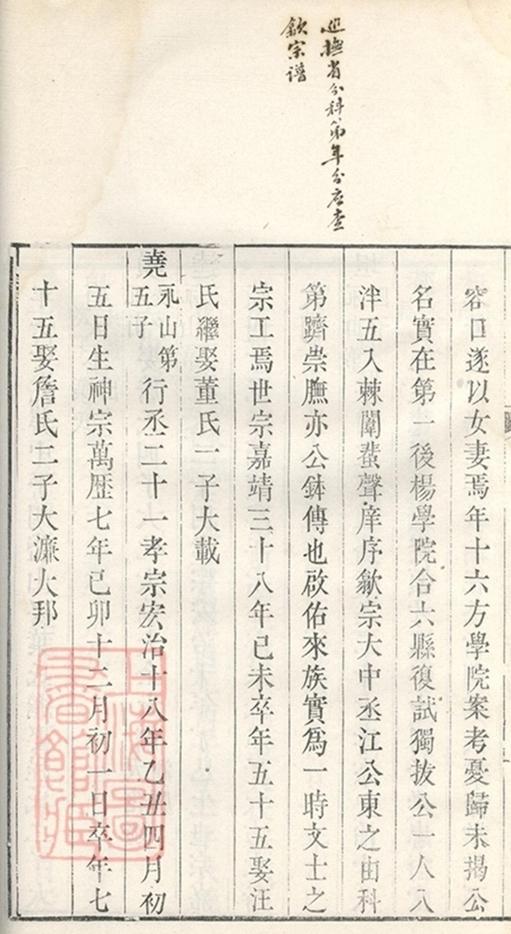 巡撫省分科第年分應查
歙宗譜
容口遂以女妻焉年十六方學院案考憂歸未揭公
名實在第一後楊學院合六縣復試獨拔公一人入
泮五入棘闈蜚聲庠序歙宗大中丞江公東之由科
第躋崇膴亦公鉢傳也啟佑來族實爲一時文士之
宗工焉世宗嘉靖三十八年己未卒年五十五娶汪
氏繼娶董氏一子大載
堯
永山第五子
行丞二十一孝宗宏治十八年乙丑四月初
五日生神宗萬歷七年己卯十二月初一日卒年七
十五娶詹氏二子大濂大邦
上海圖書館藏